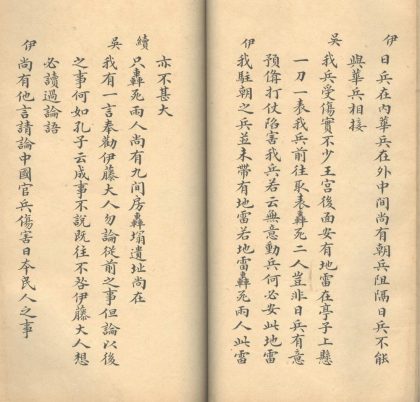 伊 日兵在內華兵在外中间尚有朝兵阻隔日兵不能
與華兵相接
吳 我兵受傷實不少王宫後面安有地雷在亭子上懸
一刀一表我兵前往取表轟死二人豈非日兵有意
預俻打仗陷害我兵若云無意動兵何必安此地雷
伊 我駐朝之兵並未帶有地雷若地雷轟死兩人此雷
亦不甚大
續 只轟死兩人尚有九间房轟塌遺址尚在
吳 我有一言奉勸伊藤大人勿論從前之事但論以後
之事何如孔子云成事不說既往不咎伊藤大人想
必讀過論語
伊 尚有他言請論中國官兵傷害日本民人之事